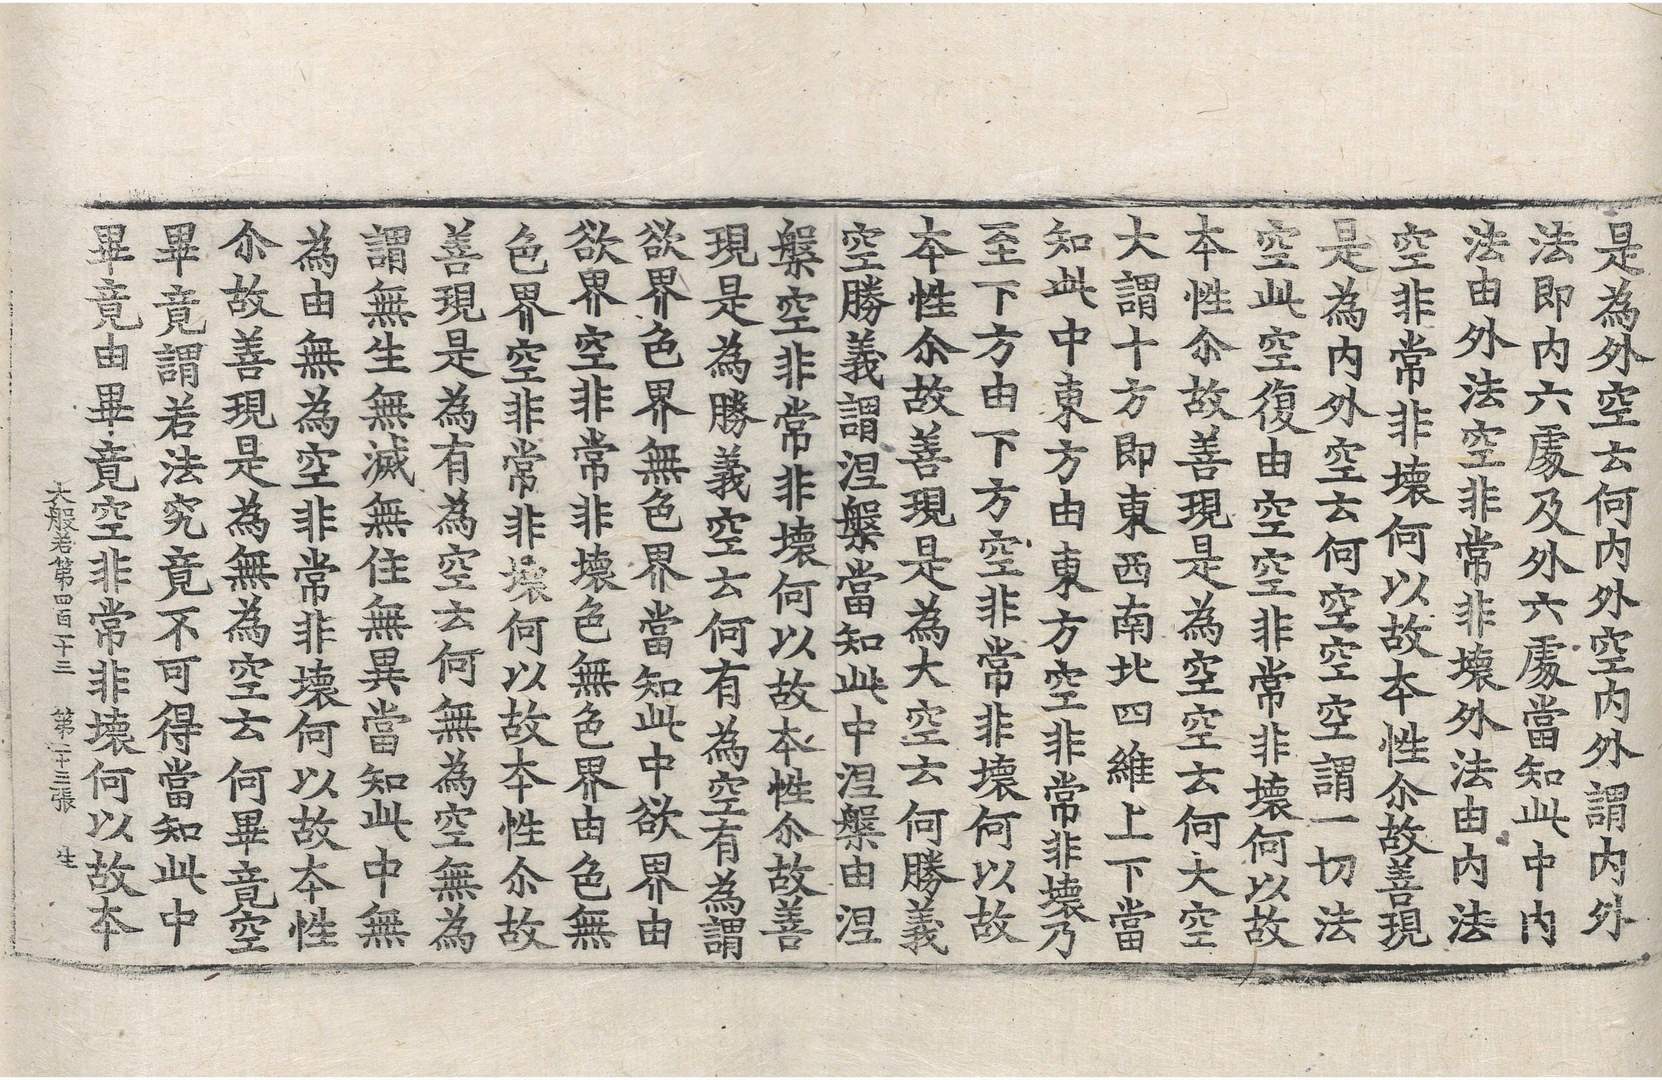 是為外空云何内外空内外謂内外
法即内六處及外六處當知此中内
法由外法空非常非壞外法由内法
空非常非壞何以故本性尒故善現
是為内外空云何空空空謂一切法
空此空復由空空非常非壞何以故
本性尒故善現是為空空云何大空
大謂十方即東西南北四維上下當
知此中東方由東方空非常非壞乃
至下方由下方空非常非壞何以故
本性尒故善現是為大空云何勝義
空勝義謂涅槃當知此中涅槃由涅
槃空非常非壞何以故本性尒故善
現是為勝義空云何有為空有為謂
欲界色界無色界當知此中欲界由
欲界空非常非壞色無色界由色無
色界空非常非壞何以故本性尒故
善現是為有為空云何無為空無為
謂無生無滅無住無異當知此中無
為由無為空非常非壞何以故本性
尒故善現是為無為空云何畢竟空
畢竟謂若法究竟不可得當知此中
畢竟由畢竟空非常非壞何以故本
大般若第四百十三　第二十三張　生